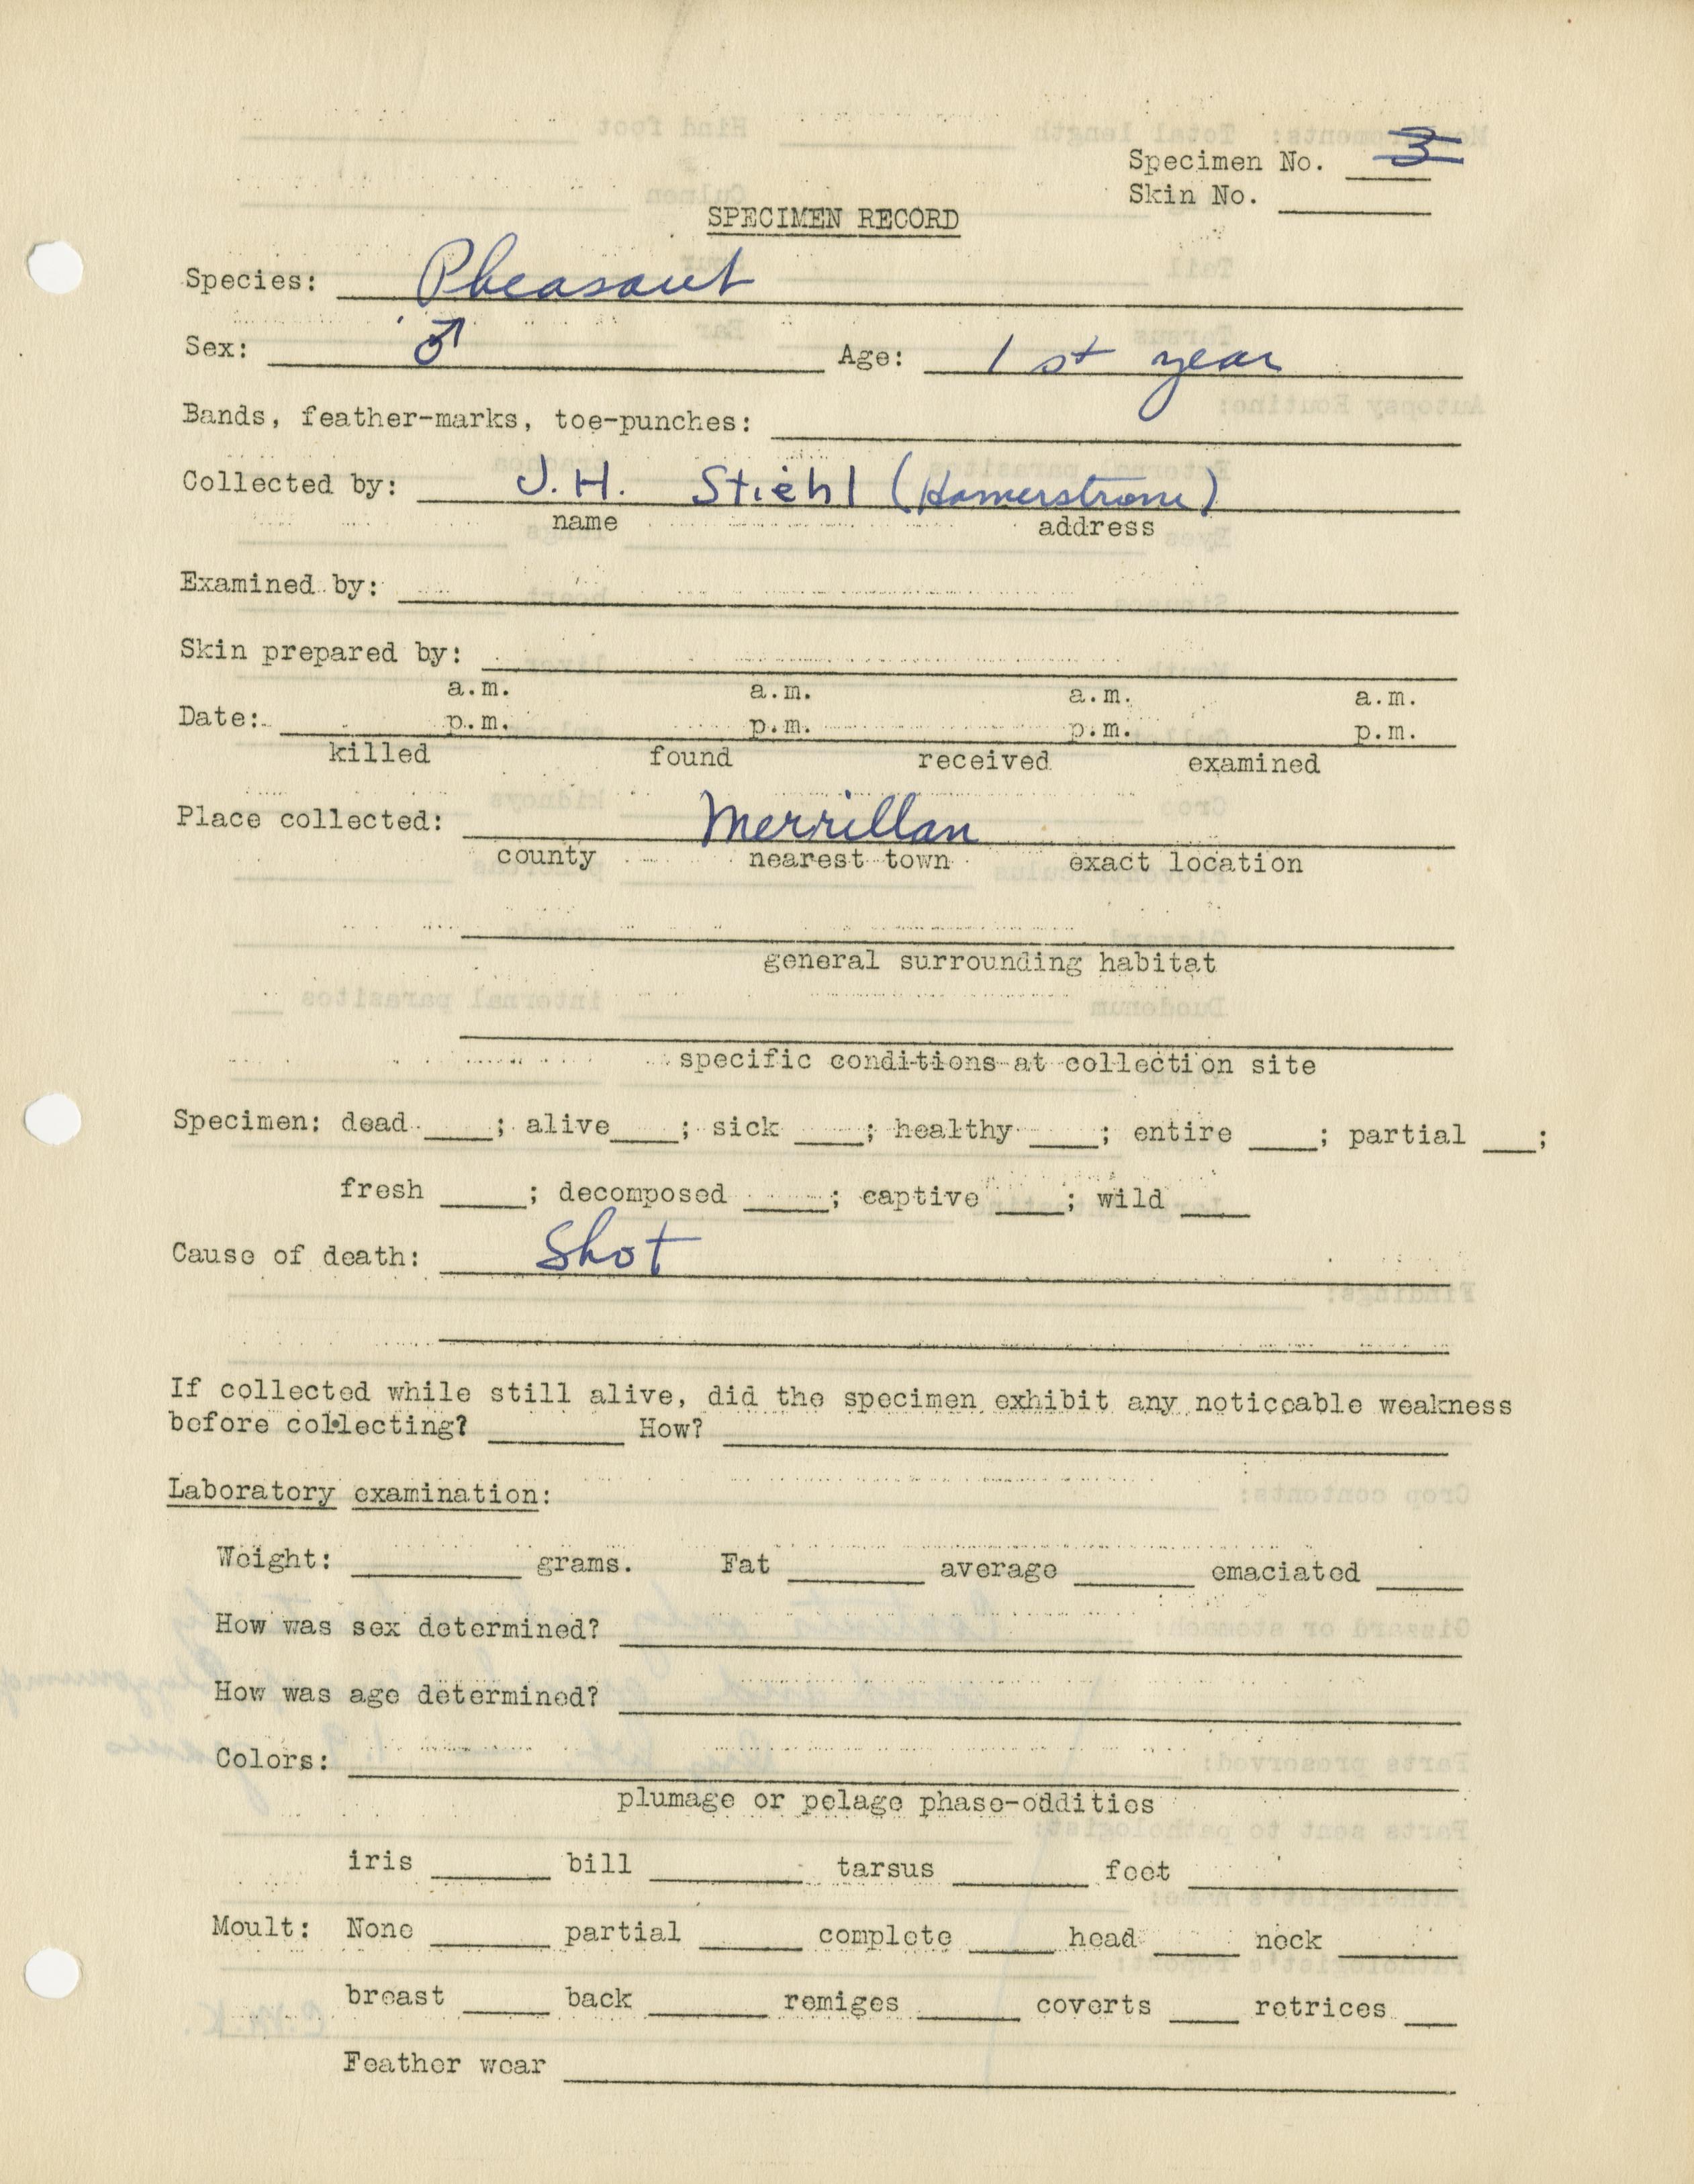 Specimen No. 3
Skin No. ____
SPECIMEN RECORD
Species: Pheasant
Sex: ♂ Age: 1st year
Bands, feather-marks, toe-punches: ____
Collected by: J.H. Stiehl (Hamerstrom)
name address
Examined by: ____
Skin prepared by: ____
a.m. a.m. a.m. a.m.
Date: ____ p.m. p.m. p.m. p.m.
killed found received examined
Place collected: Merrillan
county nearest town exact location
general surrounding habitat
specific conditions at collection site
Specimen: dead ____; alive ____; sick ____; healthy ____; entire ____; partial ____;
fresh ____; decomposed ____; captive ____; wild ____
Cause of death: Shot
If collected while still alive, did the specimen exhibit any noticeable weakness
before collecting? ____ How? ____
Laboratory examination:
Weight: ____ grams. Fat ____ average ____ emaciated ____
How was sex determined? ____
How was age determined? ____
Colors: ____
plumage or pelage phase-oddities
iris ____ bill ____ tarsus ____ feet ____
Moult: None ____ partial ____ complete ____ head ____ neck ____
breast ____ back ____ remiges ____ coverts ____ retrices ____
Feather wear ____